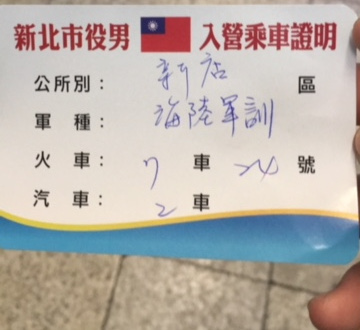 新北市役男 入營乘車證明
公所別： 新店 區
軍 種： 海陸軍訓
火 車： 7 車 24 號
汽 車： 2 車